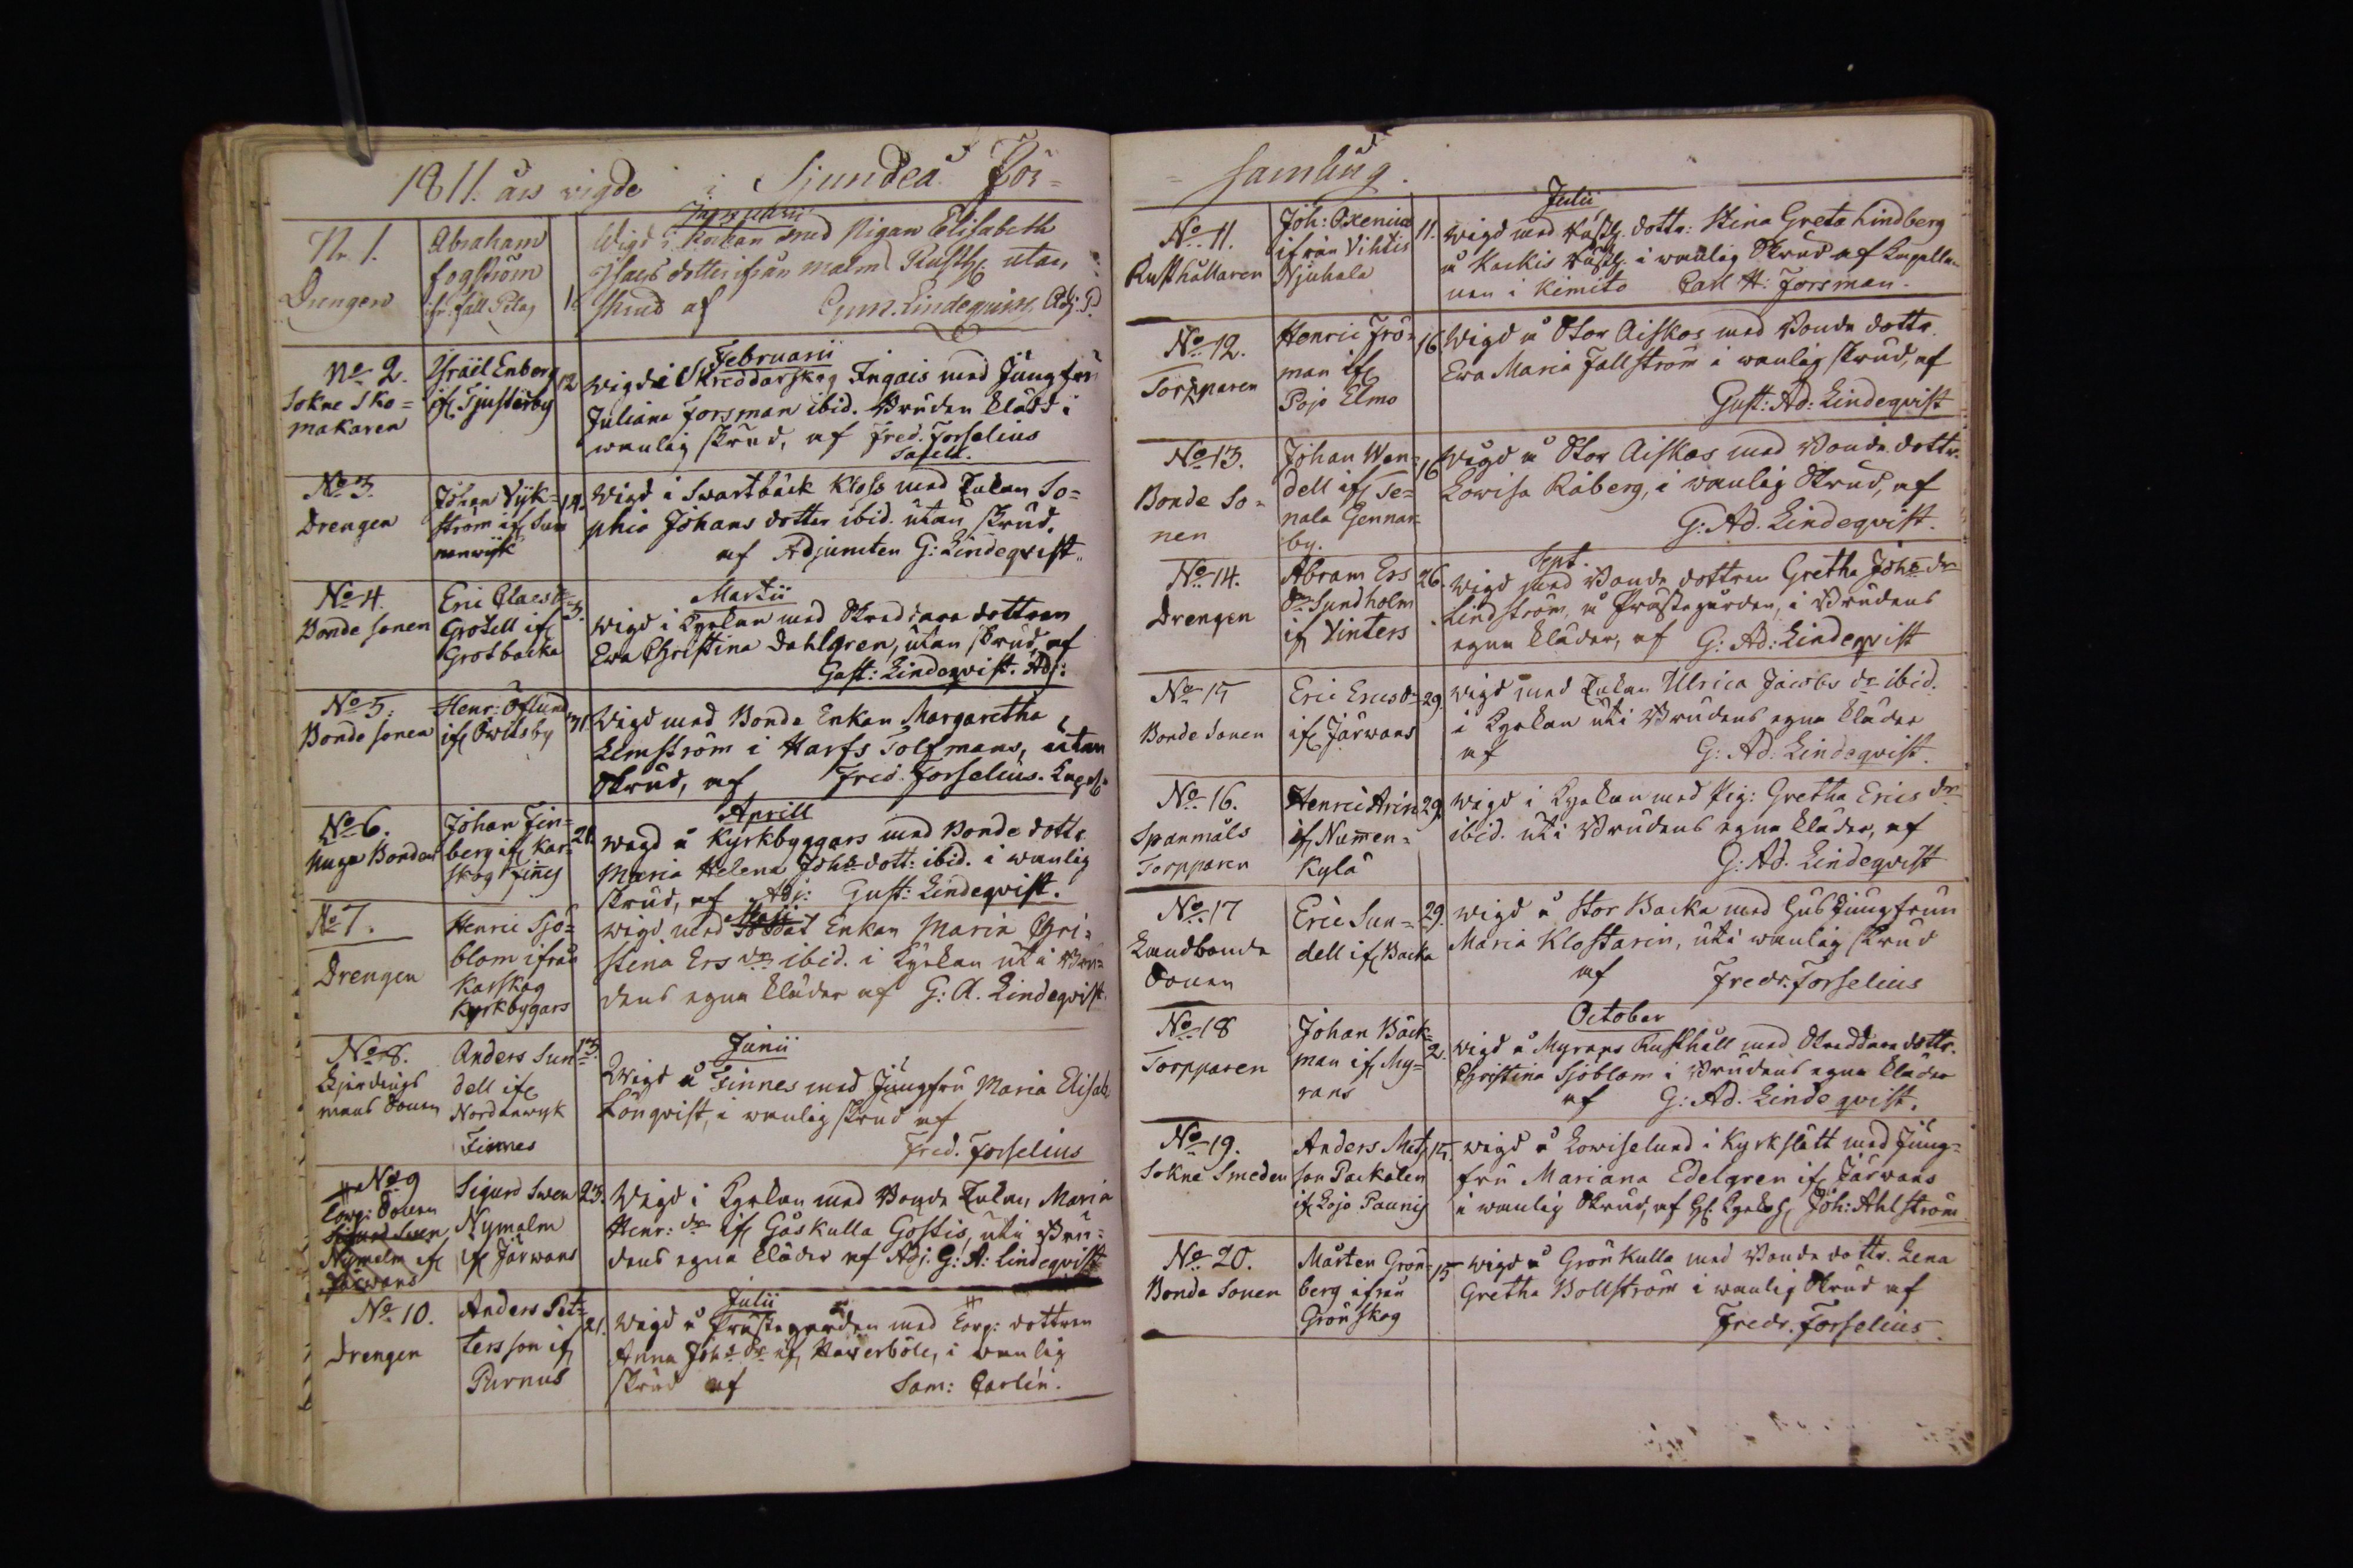 1811. års vigde i Sjundeå För=
Januarii
Nr. 1.
Drengen
Abraham
fogström
ifr: fall Petas
1.
Wigd i Kyrkan med Pigan Elisabeth
Isacs dotter ifrån malms Rusth utan
skrud af Gust. Lindeqvist. Adj. P.
Februarii
No 2.
Sokne Sko=
makaren
Israël Enberg
if Tjusterby
12
Wigd i Skreddarskog Ingais med Jungfru
Juliana Forsman ibid. Bruden klädd i
wanlig skrud, af Fred. Forselius
Sacell.
No 3.
Drengen
Johan Vijk=
ström if Sun
nanwijk
14.
Wigd i Swartbäck Kloss med Enkan So=
phia Johans dotter ibid. utan skrud,
af Adjuncten G: Lindeqvist
Martii
No 4.
Bonde sonen
Eric Claes
Grotell if
Grotbacka
3.
Wigd i Kyrkan med Skreddare dottren
Ewa Christina Dahlgren, utan skrud, af
Gust: Lindeqvist. Adj:
No 5.
Bonde sonen
Henr: Öflund
if Öwitsby
31
Wigd med Bonde Enkan Margaretha
Elmström i Harfs Tolfmans, utan
Skrud, af Fred. Forselius. Kapel:
Aprill
No 6.
Unga Bonden
Johan Fin=
berg if Kar=
skog Finis
21.
Wegd å Kyrkbyggars med Bonde dottr.
Maria Helena Johs dott: ibid. i wanlig
skrud, af Adj: Gust: Lindeqvist.
Maji
No 7.
Drengen
Henric Sjö=
blom ifrån
Karskog
Kyrkbygars
wigd med Soldat Enkan Maria Chri=
stina Ers dr ibid. i Kyrkan uti Bru=
dens egna kläder af G: A. Lindeqvist.
Junii
No 8.
Fjerdings
mans Sonen
Anders Sun
dell if
Nordanwyk
Finnes
13.
Wigd å Finnes med Jungfru Maria Elisab.
Lönqvist, i wanlig skrud af
Fred. Forselius
No 9
Torp: Sonen
Sigurd Swen
Nymalm if
Järwans
Sigurd Swen
Nymalm
if Järwans
23.
Wigd i Kyrkan med Bonde Enkan Maria
Henr: dr if Gåskulla Gostis, uti Bru=
dens egna kläder af Adj. G: A: Lindeqvist
Julii
No 10.
Drengen
Anders Pet=
tersson if
Purnus
21.
Wigd å Prästegården med Torp: dottren
Anna Johs dr if Hawerböle, i wanlig
skrud af Sam: Carlén.
= samling.
Julii
No 11.
Rusthållaren
Joh: Oxenius
ifrån Vihtis
Njuhala
11.
wigd med Rusth. dottr: Stina Greta Lindberg
å Kackis Rusth. i wanlig Skrud af Capella=
nen i Kimito Carl H: Forsman.
No 12.
Torpparen
Henric Frö=
man if
Pojo Elmo
16.
Wigd å Stor Aiskos med Bonde dottr.
Ewa Maria Fallström i wanlig skrud, af
Gust: Ad: Lindeqvist
No 13.
Bonde So=
nen
Johan Wen=
dell if Te=
nala Gennar=
by.
16
Wegd å Stor Aiskos med Bonde dottr.
Lowisa Råberg, i wanlig Skrud, af
G: Ad. Lindeqvist.
Sept.
No 14.
Drengen
Abram Ers
Sn Sundholm
if Vinters
26.
Wigd med Bonde dottren Gretha Johs dr
Lindström, å Prästegården, i Brudens
egna kläder, af G: Ad: Lindeqvist
No 15
Bonde Sonen
Eric Erics Sn
if Järwans
29
wigd med Enkan Ulrica Jacobs dr ibid.
i Kyrkan uti Brudens egna kläder
af G: Ad: Lindeqvist.
No 16.
Spanmåls
Torpparen
Henric Arin
if Nummen=
Kylä
29.
wigd i Kyrkan med Pig: Gretha Erics dr
ibid. uti Brudens egna kläder, af
G: Ad. Lindeqvist
No 17
Landbonde
Sonen
Eric Sun=
dell if Backa
29.
wigd å Stor Backa med Hus Jungfrun
Maria Klostarin, uti wanlig skrud
af Fredr. Forselius
October
No 18
Torpparen
Johan Bäck=
man if My=
rans
2.
wigd å Myrans Rusthåll med Skreddare dottr.
Christina Sjöblom i Brudens egna kläder
af G: Ad. Lindeqvist.
No 19.
Sokne Smeden
Anders Mats
son Packalen
if Lojo Paunis
15.
wigd å Lowiselund i Kyrkslätt med Jung=
fru Mariana Edelgren if Järwans
i wanlig Skrud, af Joh: Ahlström
No 20.
Bonde Sonen
Mårten Grön=
berg ifrån
Grönskog
15
wigd å Grönkulla med Bonde dottr. Lena
Gretha Bollström i wanlig Skrud af
Fredr. Forselius.